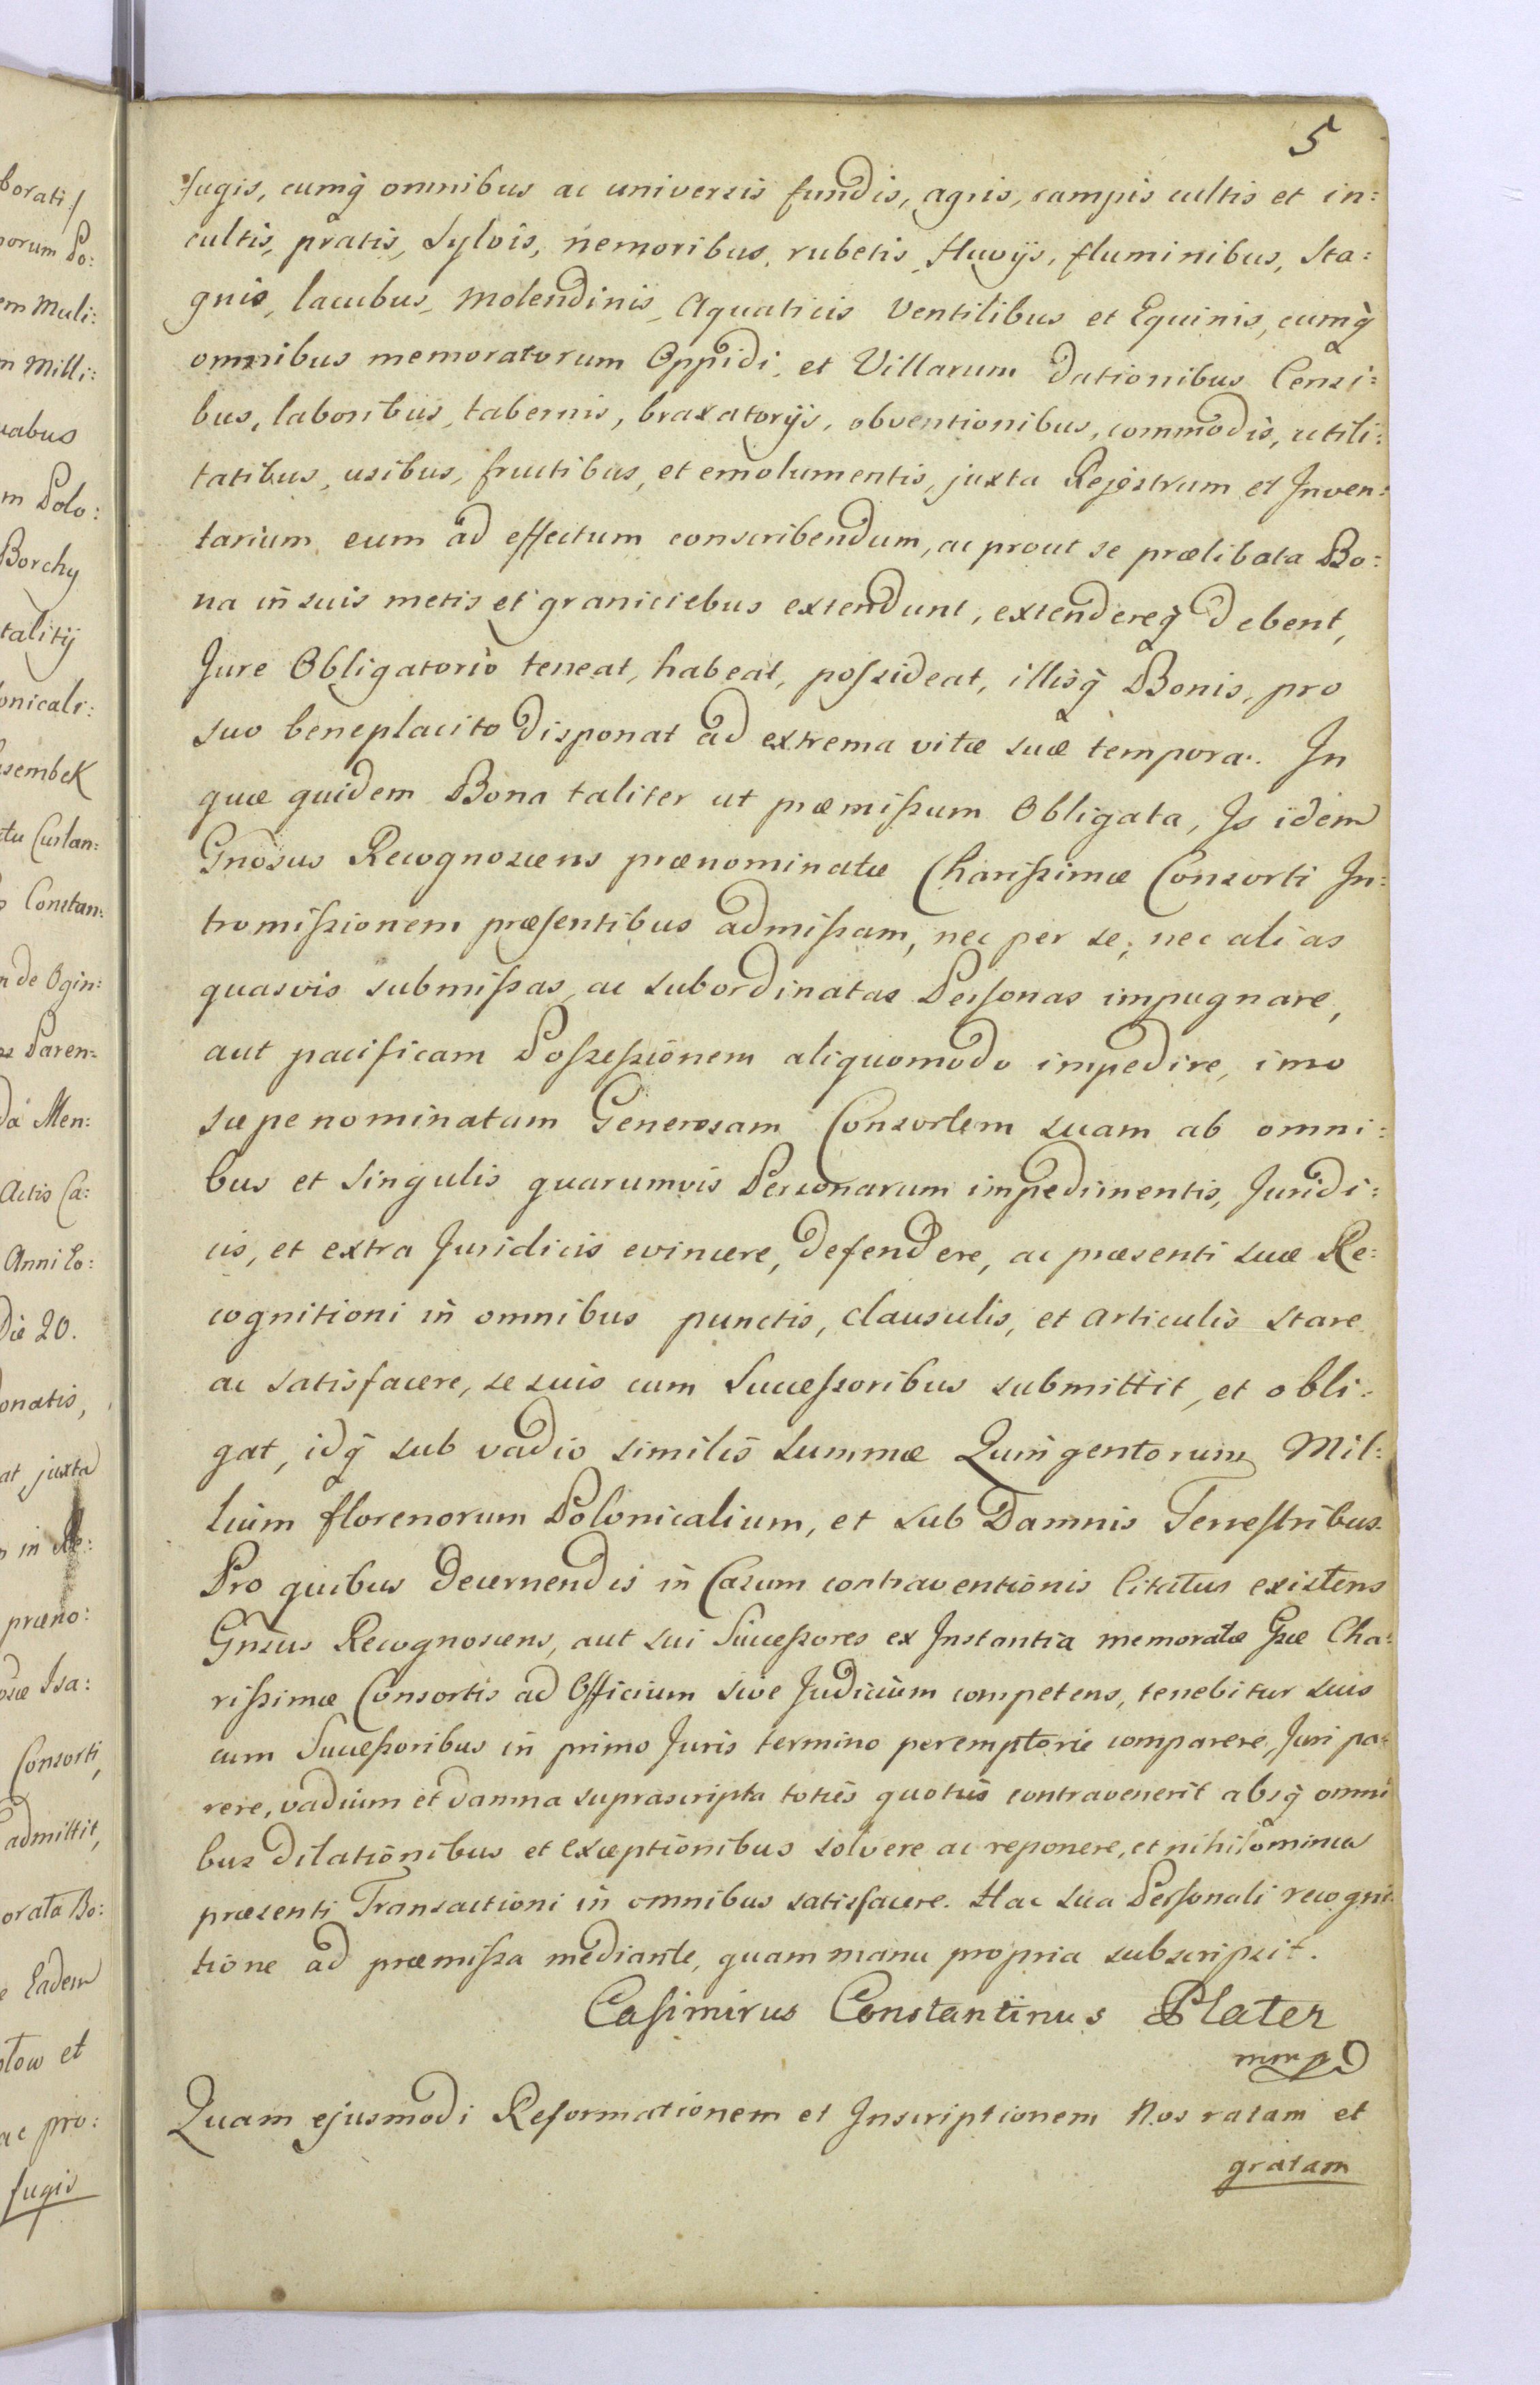 borati:/
norum Po:
em Muli:
m Milli:
uabus
m Polo:
Borchy
talitij
onicali:
sembek
tu Curlan:
Constan:
n de Ogin:
Paren:
da Men:
Actis Ca:
Anni Eo:
Die 20.
onatis,
at juxta
in Re:
præno:
osæ Isa:
Consorti,
admittit,
orata Bo:
Eadem
tow et
ac pro:
fugis
5
fugis, cumq̀ omnibus ac universis fundis, agris, campis cultis et in:
cultis, pratis, Sylvis, nemoribus, rubetis, fluvijs, fluminibus, Sta:
gnis, lacubus, molendinis, Aquaticis Ventilibus et Equinis, cumq̀
omnibus memoratorum Oppidi, et Villarum dationibus Censi:
bus, laboribus, tabernis, braxatorijs, obventionibus, commodis, utili:
tatibus, usibus, fructibus, et emolumentis, juxta Regestrum et Inven:
tarium eum ad effectum conscribendum, ac prout se prælibata Bo:
na in suis metis et graniciebus extendunt, extendereq̀ debent,
Jure Obligatorio teneat, habeat, possideat, illisq̀ Bonis, pro
suo beneplacito disponat ad extrema vitæ suæ tempora. In
quæ quidem Bona taliter ut præmissum Obligata, Is idem
Gnosus Recognoscens prænominatæ Charissimæ Consorti In:
tromissionem præsentibus admissam, nec per se, nec alias
quasvis submissas, ac subordinatas Personas impugnare,
aut pacificam Possessionem aliquomodo impedire, imo
sæpe nominatam Generosam Consortem suam ab omni:
bus et singulis quarumvis Personarum impedimentis, Juridi:
cis, et extra Juridicis evincere, defendere, ac præsenti suæ Re:
cognitioni in omnibus punctis, clausulis, et articulis stare
ac satisfacere, se suis cum Successoribus submittit, et obli:
gat, idq̀ sub vadio similis summæ Quingentorum Mil:
lium florenorum Polonicalium, et sub Damnis Terrestribus.
Pro quibus decernendis in Casum contraventionis Citatus existens
Gnsus Recognoscens, aut sui Successores ex Instantia memoratæ Gsæ Cha:
rissimæ Consortis ad Officium sive Judicium competens, tenebitur suis
cum Successoribus in primo Juris termino peremptorie comparere, Juri pa:
rere, vadium et damna suprascripta toties quoties contravenerit absq̀ omni
bus dilationibus et exceptionibus solvere ac reponere, et nihilominus
præsenti Transactioni in omnibus satisfacere. Hac sua Personali recogni:
tione ad præmissa mediante, quam manu propria subscripsit.
Casimirus Constantinus Plater
mmp
Quam ejusmodi Reformationem et Inscriptionem Nos ratam et
gratam